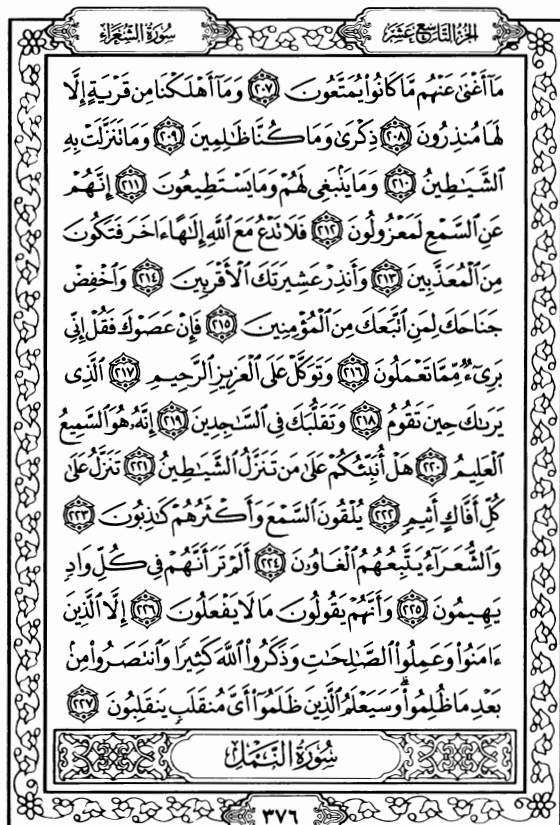 سُورَةُ الشُّعَرَاءِ
الجُزْءُ التَّاسِعَ عَشَرَ
مَآ أَغْنَىٰ عَنْهُم مَّا كَانُوا۟ يُمَتَّعُونَ ٢٠٧ وَمَآ أَهْلَكْنَا مِن قَرْيَةٍ إِلَّا
لَهَا مُنذِرُونَ ٢٠٨ ذِكْرَىٰ وَمَا كُنَّا ظَٰلِمِينَ ٢٠٩ وَمَا تَنَزَّلَتْ بِهِ
ٱلشَّيَٰطِينُ ٢١٠ وَمَا يَنۢبَغِى لَهُمْ وَمَا يَسْتَطِيعُونَ ٢١١ إِنَّهُمْ
عَنِ ٱلسَّمْعِ لَمَعْزُولُونَ ٢١٢ فَلَا تَدْعُ مَعَ ٱللَّهِ إِلَٰهًا ءَاخَرَ فَتَكُونَ
مِنَ ٱلْمُعَذَّبِينَ ٢١٣ وَأَنذِرْ عَشِيرَتَكَ ٱلْأَقْرَبِينَ ٢١٤ وَٱخْفِضْ
جَنَاحَكَ لِمَنِ ٱتَّبَعَكَ مِنَ ٱلْمُؤْمِنِينَ ٢١٥ فَإِنْ عَصَوْكَ فَقُلْ إِنِّى
بَرِىٓءٌ مِّمَّا تَعْمَلُونَ ٢١٦ وَتَوَكَّلْ عَلَى ٱلْعَزِيزِ ٱلرَّحِيمِ ٢١٧ ٱلَّذِى
يَرَىٰكَ حِينَ تَقُومُ ٢١٨ وَتَقَلُّبَكَ فِى ٱلسَّٰجِدِينَ ٢١٩ إِنَّهُۥ هُوَ ٱلسَّمِيعُ
ٱلْعَلِيمُ ٢٢٠ هَلْ أُنَبِّئُكُمْ عَلَىٰ مَن تَنَزَّلُ ٱلشَّيَٰطِينُ ٢٢١ تَنَزَّلُ عَلَىٰ
كُلِّ أَفَّاكٍ أَثِيمٍ ٢٢٢ يُلْقُونَ ٱلسَّمْعَ وَأَكْثَرُهُمْ كَٰذِبُونَ ٢٢٣
وَٱلشُّعَرَآءُ يَتَّبِعُهُمُ ٱلْغَاوُۥنَ ٢٢٤ أَلَمْ تَرَ أَنَّهُمْ فِى كُلِّ وَادٍ
يَهِيمُونَ ٢٢٥ وَأَنَّهُمْ يَقُولُونَ مَا لَا يَفْعَلُونَ ٢٢٦ إِلَّا ٱلَّذِينَ
ءَامَنُوا۟ وَعَمِلُوا۟ ٱلصَّٰلِحَٰتِ وَذَكَرُوا۟ ٱللَّهَ كَثِيرًا وَٱنتَصَرُوا۟ مِنۢ
بَعْدِ مَا ظُلِمُوا۟ ۗ وَسَيَعْلَمُ ٱلَّذِينَ ظَلَمُوٓا۟ أَىَّ مُنقَلَبٍ يَنقَلِبُونَ ٢٢٧
سُورَةُ النَّمْلِ
٣٧٦